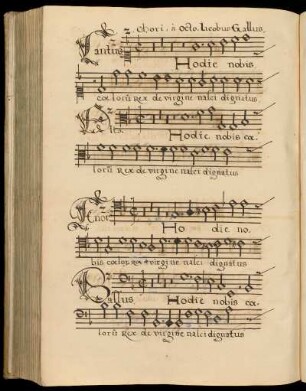 Chori. à Octo. Iacobus Gallus.
Cantus
Hodie nobis
cœlorū Rex de virgine nasci dignatus
Altus
Hodie nobis cœ.
lorū Rex de virgine nasci dignatus
Tenor
Ho die no.
bis cœlorū rex virgine nasci dignatus
Bassus
Hodie nobis cœ.
lorū Rex de virgine nasci dignatus